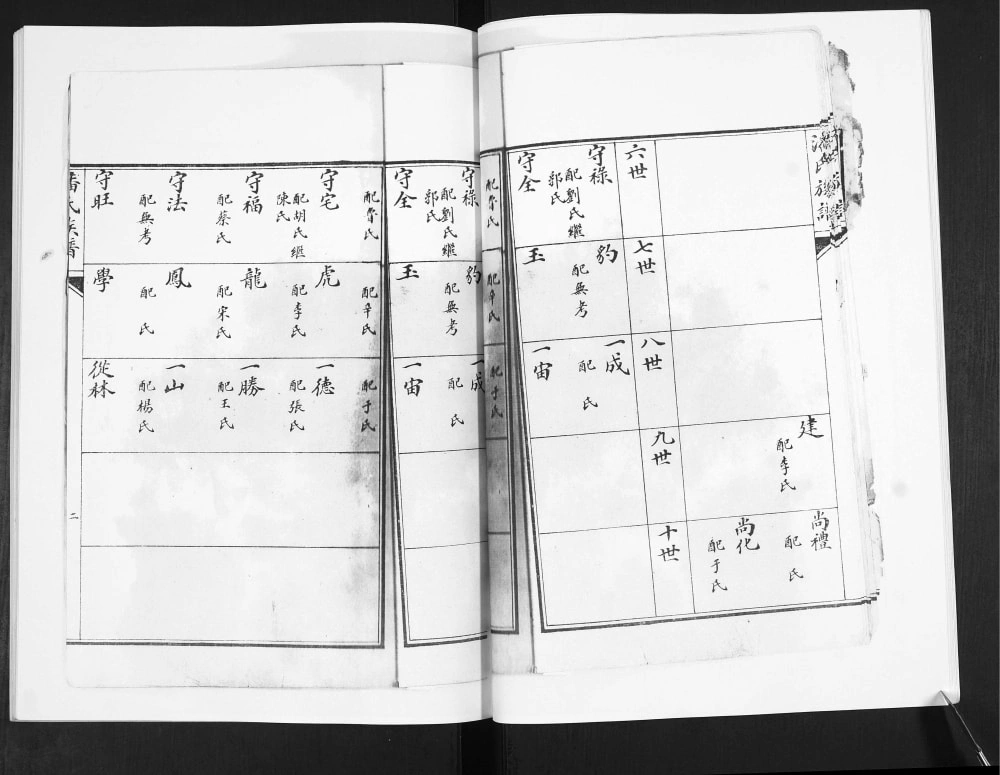 潘氏族譜
建
配李氏
尚禮
配　氏
尚化
配于氏
六世
七世
八世
九世
十世
守祿
配劉氏繼
郭氏
豹
配無考
一成
配　氏
守全
玉
一宙
配　氏
配辛氏
配于氏
守祿
配劉氏繼
郭氏
豹
配無考
一成
配　氏
守全
玉
一宙
配　氏
配辛氏
配于氏
守宅
配胡氏繼
陳氏
虎
配李氏
一德
配張氏
守福
配蔡氏
龍
配宋氏
一勝
配王氏
守法
配無考
鳳
配　氏
一山
配楊氏
守旺
學
從林
潘氏族譜
二